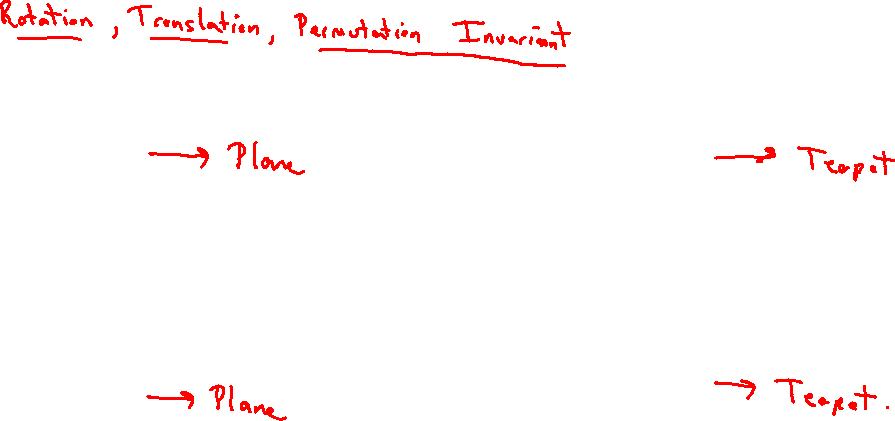 Rotation, Translation, Permutation Invariant
→ Plane → Teapot
→ Plane → Teapot.